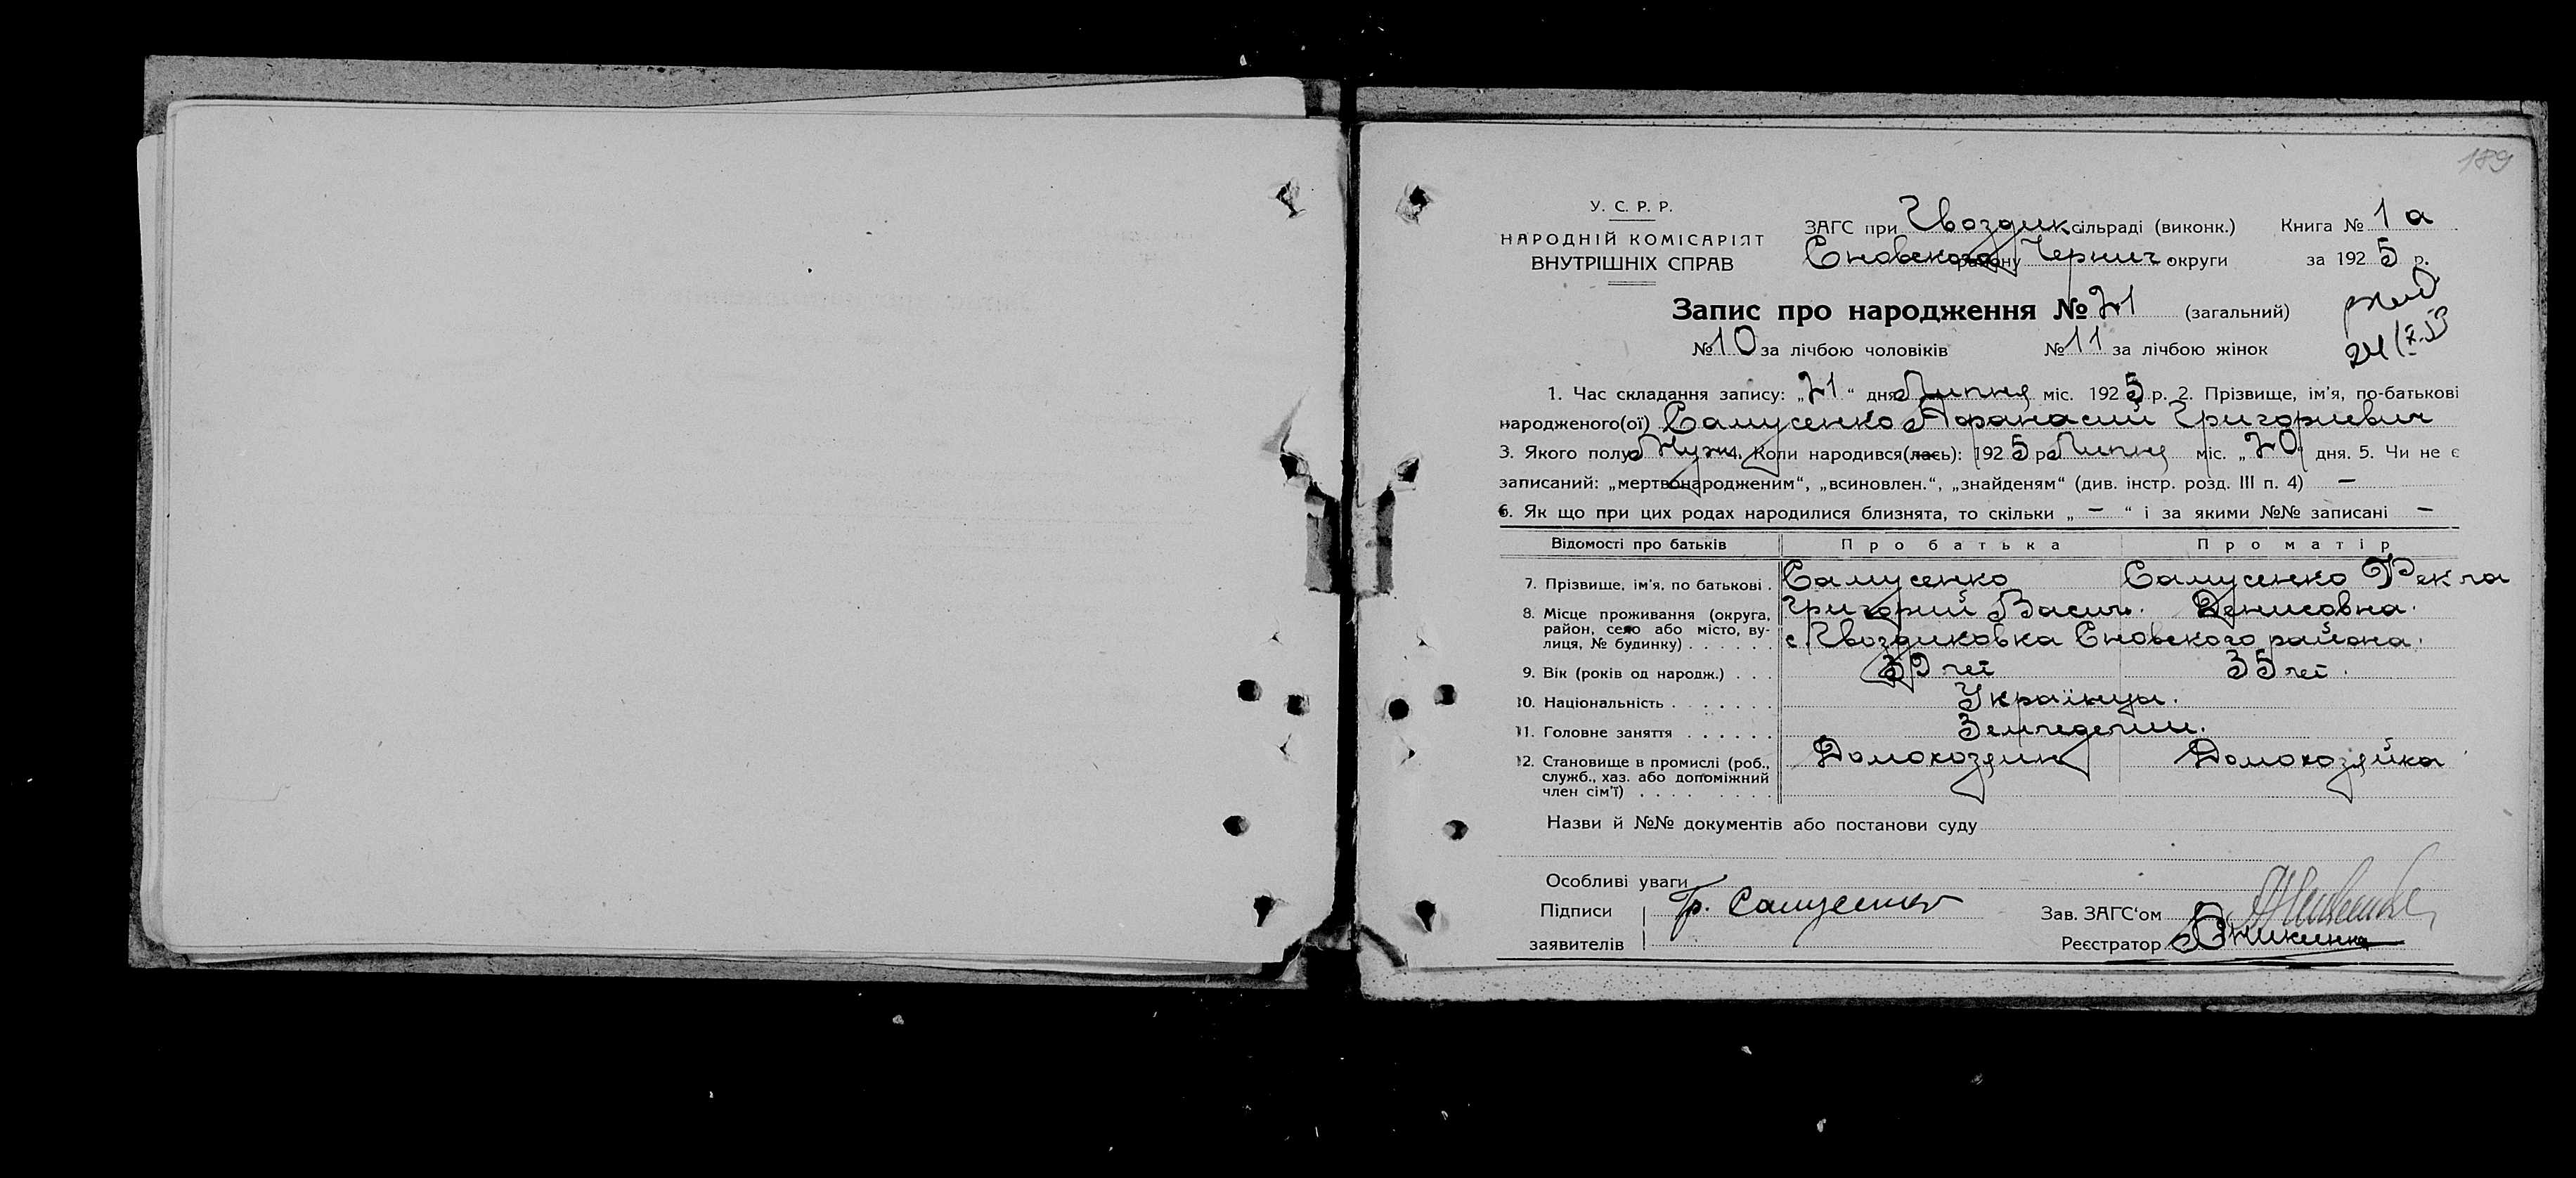 189
У. С. Р. Р.
НАРОДНІЙ КОМІСАРІЯТ
ВНУТРІШНІХ СПРАВ
ЗАГС при Гвоздик сільраді (виконк.) Книга № 1 а
Сновского району Черниг округи за 1925 р.
Запис про народження № 21 (загальний)
№ 10 за лічбою чоловіків № 11 за лічбою жінок
1. Час складання запису: „21“ дня Липня міс. 1925 р. 2. Прізвище, ім'я, по-батькові
народженого(ої) Самусенко Афанасий Григориевич
3. Якого полу Муж. 4. Коли народився(лась): 1925 р Липня міс. „20“ дня. 5. Чи не є
записаний: „мертвонародженим“, „всиновлен.“, „знайденям“ (див. інстр. розд. III п. 4) —
6. Як що при цих родах народилися близнята, то скільки „ — “ і за якими №№ записані —
Відомості про батьків Про батька Про матір
7. Прізвище, ім'я, по батькові . Самусенко Самусенко Фекла
Григорий Васил. Денисовна.
8. Місце проживання (округа,
район, село або місто, вулиця, № будинку) . . . . . . с. Гвоздиковка Сновского района.
9. Вік (років од народж.) . . . 39 лет 35 лет.
10. Національність . . . . . . . Українци.
11. Головне заняття . . . . . . Земледелии.
12. Становище в промислі (роб.,
служб., хаз. або допоміжний
член сім'ї) . . . . . . . . . Домохозяин Домохозяйка
Назви й №№ документів або постанови суду
Особливі уваги
Підписи Гр. Самусенко Зав. ЗАГС'ом
заявителів Реєстратор